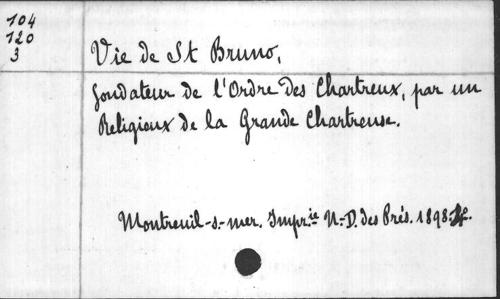 104
120
3
Vie de St Bruno,
fondateur de l'Ordre des Chartreux, par un
Religieux de la Grande Chartreuse.
Montreuil-s.-mer. Impr.ie N.-D. des Prés. 1898.